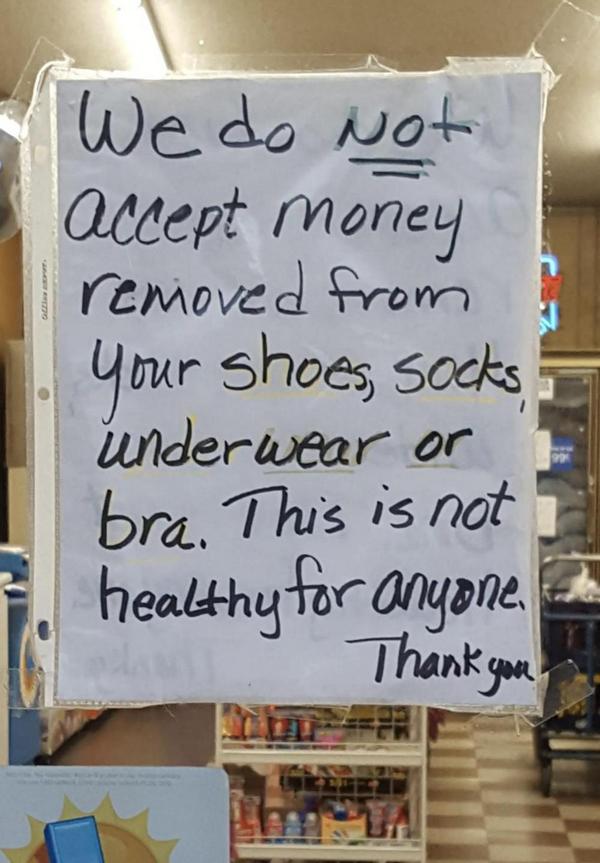 We do Not
accept money
removed from
your shoes, socks,
underwear or
bra. This is not
healthy for anyone.
Thank you
99¢